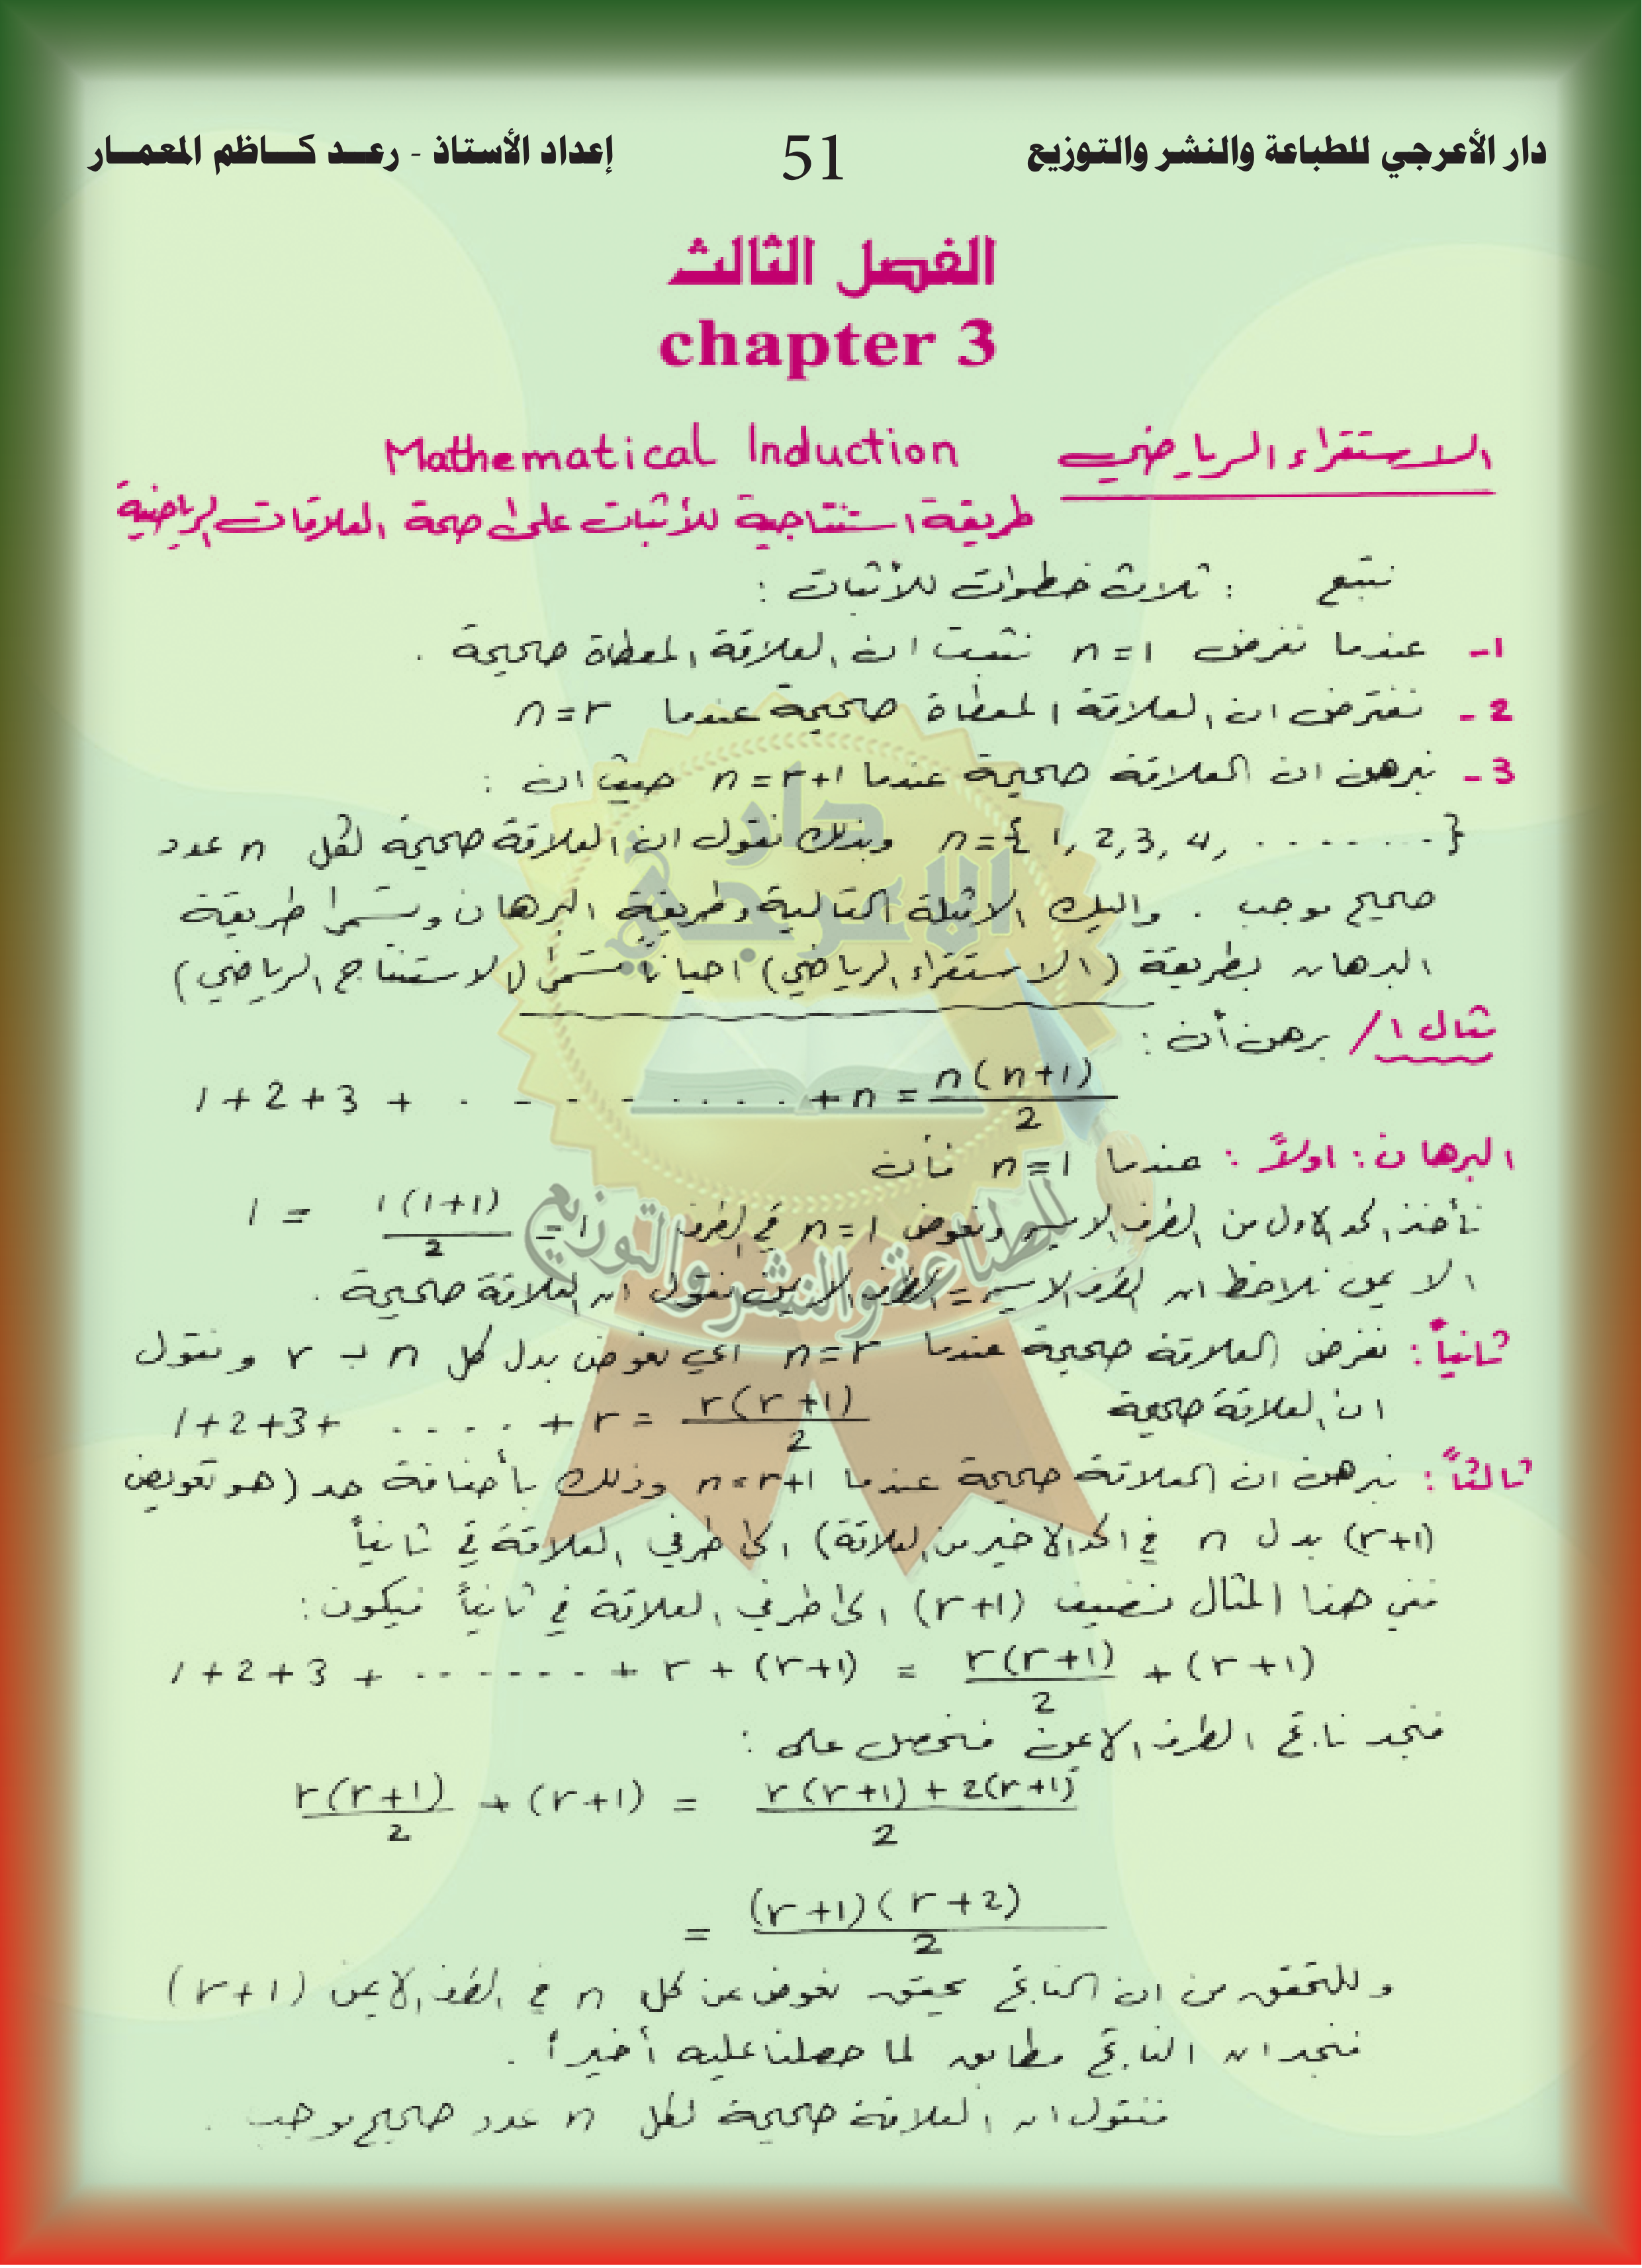 دار الأعرجي للطباعة والنشر والتوزيع 51 إعداد الأستاذ - رعد كاظم المعمار
الفصل الثالث
chapter 3
الاستقراء الرياضي Mathematical Induction
طريقة استنتاجية للأثبات على صحة العلاقات الرياضية
نتبع : ثلاث خطوات للأثبات :
1- عندما نفرض n=1 نثبت ان العلاقة المعطاة صحيحة .
2- نفترض ان العلاقة المعطاة صحيحة عندما n=r
3- نبرهن ان العلاقة صحيحة عندما n=r+1 حيث ان :
n={ 1, 2, 3, 4, ........} وبذلك نقول ان العلاقة صحيحة لكل n عدد
صحيح موجب . واليك الامثلة التالية وطريقة البرهان وتسمى طريقة
البرهان بطريقة (الاستقراء الرياضي) احياناً تسمى (الاستنتاج الرياضي)
مثال 1/ برهن أن :
1+2+3+ ......... +n = n(n+1)/2
البرهان : اولاً : عندما n=1 فأن
نأخذ الحد الاول من الطرف الايسر ونعوض n=1 في الطرف 1 = 1(1+1)/2 = 1
الايمن نلاحظ ان الطرف الايسر = الطرف الايمن نقول ان العلاقة صحيحة .
ثانياً : نفرض العلاقة صحيحة عندما n=r اي نعوض بدل كل n بـ r ونقول
ان العلاقة صحيحة 1+2+3+ ..... + r = r(r+1)/2
ثالثاً : نبرهن ان العلاقة صحيحة عندما n=r+1 وذلك بأضافة حد (هو تعويض
(r+1) بدل n في الحد الاخير من العلاقة) الى طرفي العلاقة في ثانياً
ففي هذا المثال نضيف (r+1) الى طرفي العلاقة في ثانياً فيكون :
1+2+3+ ....... + r + (r+1) = r(r+1)/2 + (r+1)
فنجد ناتج الطرف الايمن فنحصل على :
r(r+1)/2 + (r+1) = r(r+1)+2(r+1)/2
= (r+1)(r+2)/2
وللتحقق من ان الناتج يحقق نعوض عن كل n في الطرف الايمن (r+1)
فنجد ان الناتج مطابق لما حصلنا عليه أخيراً .
فنقول ان العلاقة صحيحة لكل n عدد صحيح موجب .
دار
الاعرجي
للطباعة والنشر والتوزيع